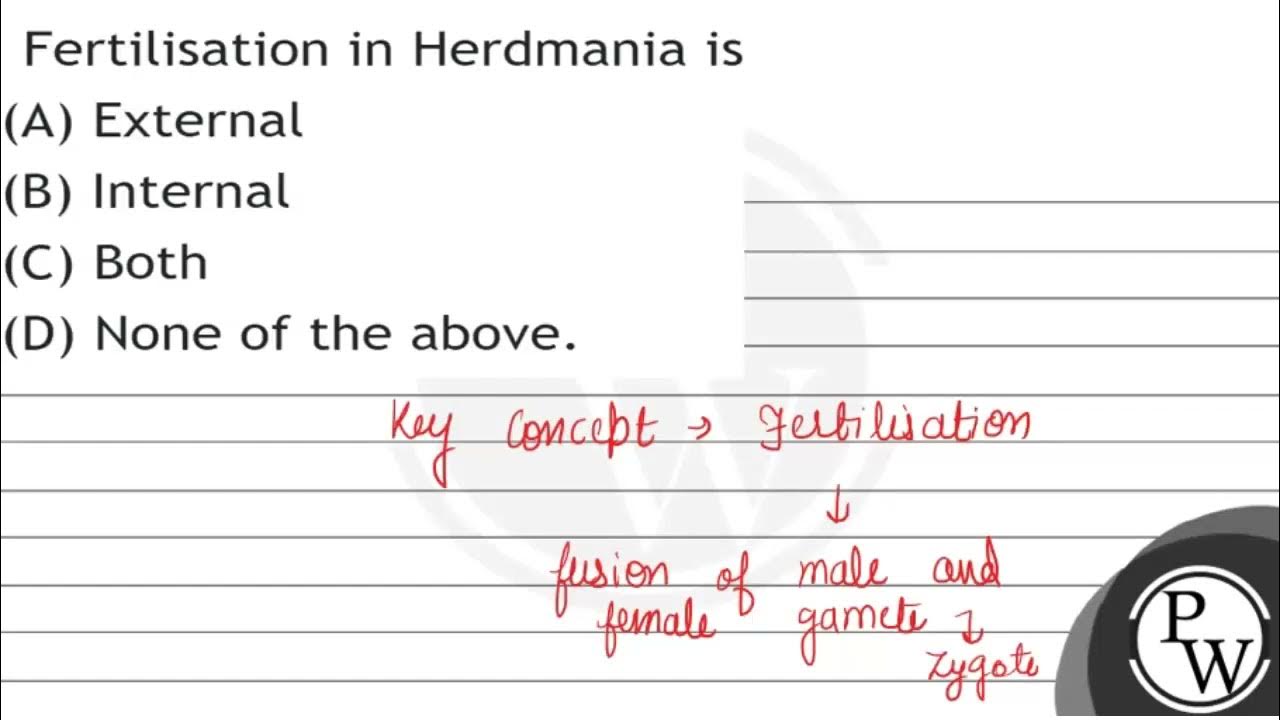 Fertilisation in Herdmania is
(A) External
(B) Internal
(C) Both
(D) None of the above.
Key concept → Fertilisation
↓
fusion of male and
female gamete ↴
zygote
PW